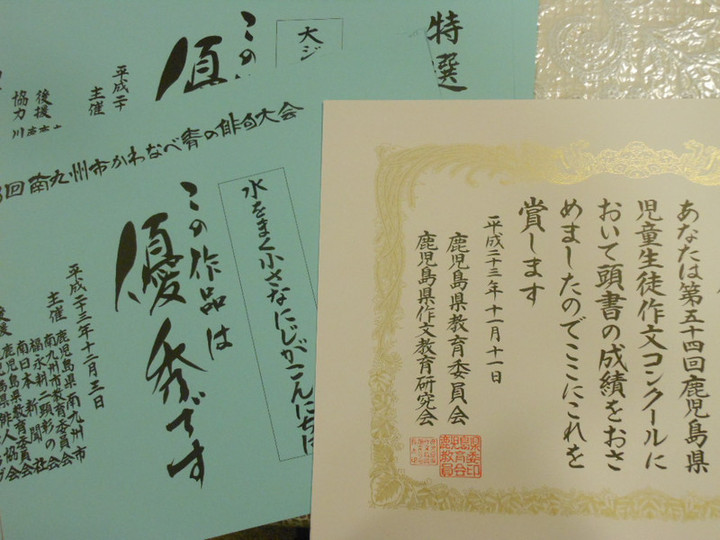 あなたは第五十四回鹿児島県
児童生徒作文コンクールに
おいて頭書の成績をおさ
めましたのでここにこれを
賞します
平成二十三年十一月十一日
鹿児島県教育委員会
鹿児島県作文教育研究会
特選
大ジ
この
優
平成二十
主催
後援
協力
回南九州市かわなべ青の俳句大会
水をまく小さなにじがこんにちは
この作品は
優秀です
平成二十三年十二月三日
主催
鹿児島県南九州市
南九州市教育委員会
南日本新聞社
福永新二顕彰の会
後援
鹿児島県教育委員会